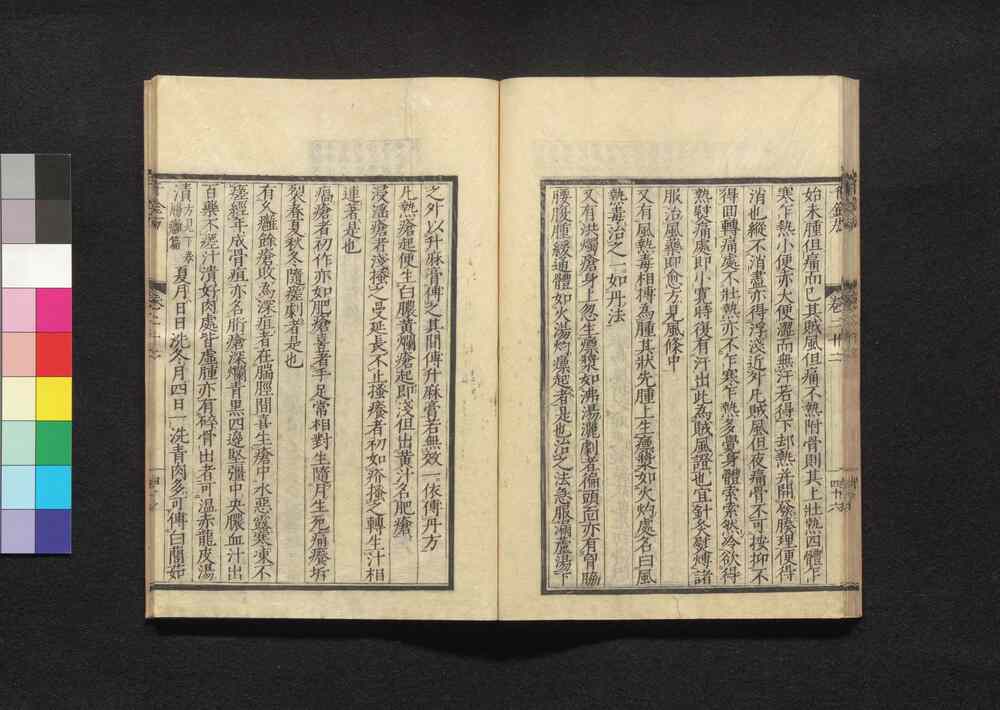 始末腫但痛而已其賊風但痛不熱附骨則其上壯熱四體乍
寒乍熱小便赤大便澀而無汗若得下却熱并開發腠理便得
消也縱不消盡亦得浮淺近外凡賊風但夜痛骨不可按抑不
得回轉痛處不壯熱亦不乍寒乍熱多覺身體索索然冷欲得
熱熨痛處即小寬時復有汗出此為賊風證也宜針灸熨煿諸
服治風藥即愈方見風條中
又有風熱毒相搏為腫其狀先腫上生瘭漿如火灼處名曰風
熱毒治之一如丹法
又有洪燭瘡身上忽生瘭漿如沸湯灑劇者徧頭面亦有胷脇
腰腹腫緩通體如火湯灼瘭起者是也治之法急服漏蘆湯下
之外以升麻膏傅之其間傅升麻膏若無效一依傅丹方
凡熱瘡起便生白膿黃爛瘡起即淺但出黃汁名肥瘡
浸淫瘡者淺搔之曼延長不止搔癢者初如疥搔之轉生汁相
連著是也
㾫瘡者初作亦如肥瘡喜著手足常相對生隨月生死痛癢坼
裂春夏秋冬隨瘥劇者是也
有久癰餘瘡敗為深疽者在腨脛間喜生瘡中水惡露寒凍不
瘥經年成骨疽亦名胻瘡深爛青黑四邊堅彊中央膿血汁出
百藥不瘥汁潰好肉處皆虛腫亦有碎骨出者可溫赤龍皮湯
漬
方見下卷
腸癰篇
夏月日日洗冬月四日一洗青肉多可傅白䕡茹
卷二十二